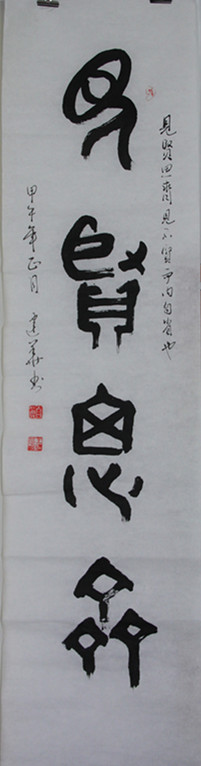 見賢思齊見不賢而内自省也
見賢思齊
甲午年正月 建華書